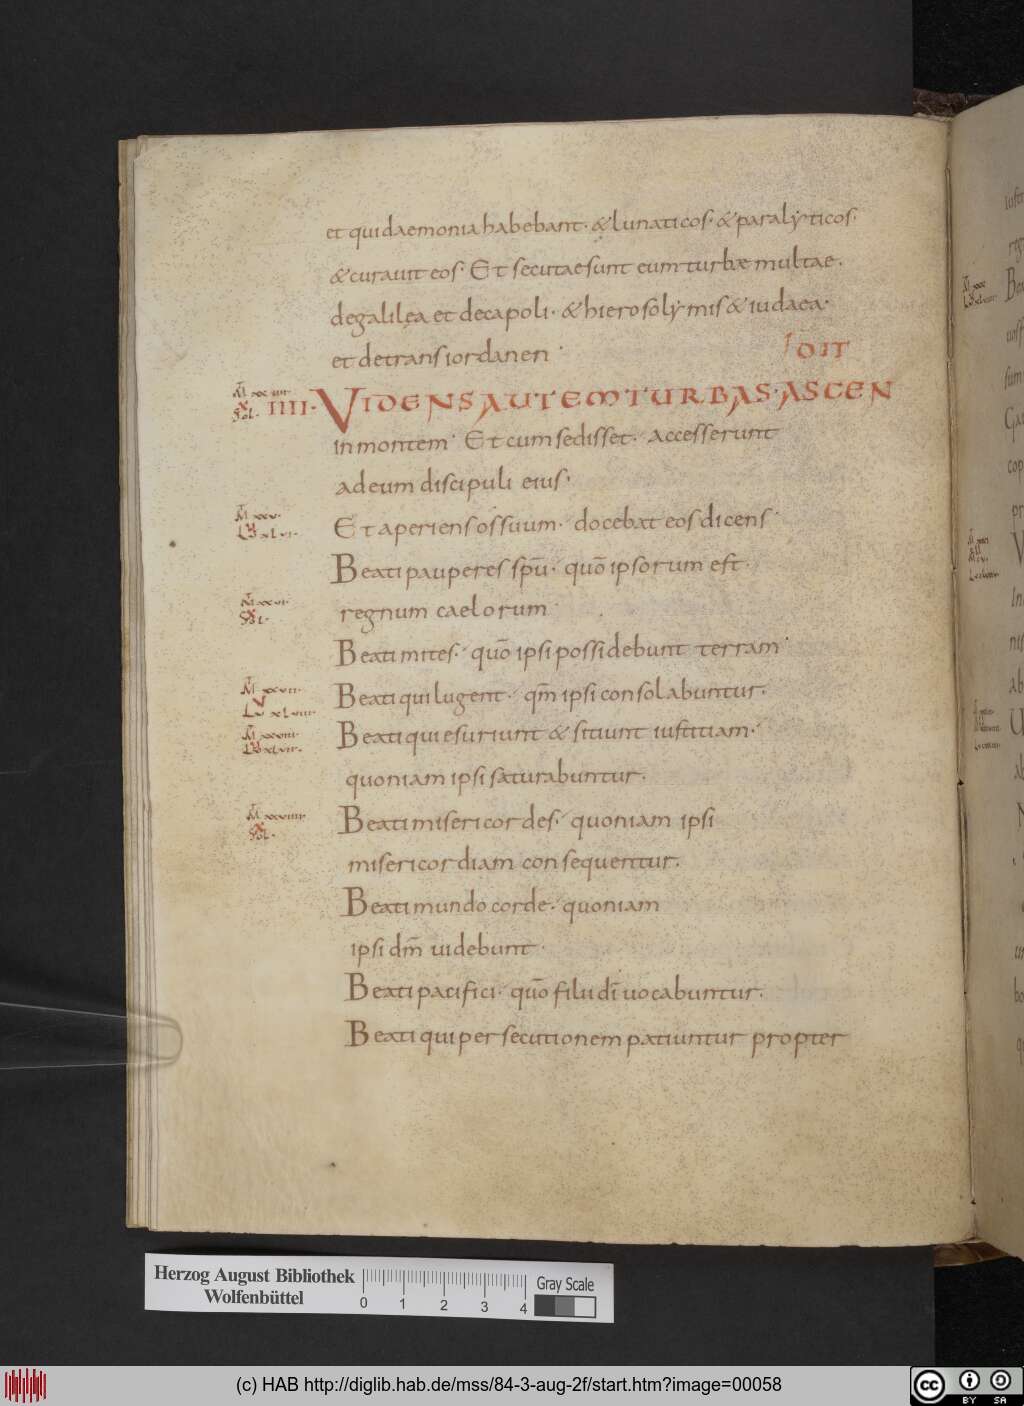 et qui daemonia habebant · & lunaticos · & paralyticos ·
& curauit eos · Et secutae sunt eum turbæ multae ·
de galilęa et decapoli · & hierosolymis & iudaea ·
et de trans iordanen ·
DIT
IIII · VIDENS AUTEM TURBAS · ASCEN
in montem · Et cum sedisset · accesserunt
ad eum discipuli eius ·
Et aperiens os suum · docebat eos dicens ·
Beati pauperes spū · quō ipsorum est ·
regnum caelorum ·
Beati mites · quō ipsi possidebunt terram ·
Beati qui lugent · qm̄ ipsi consolabuntur ·
Beati qui esuriunt & sitiunt iustitiam ·
quoniam ipsi saturabuntur ·
Beati misericordes · quoniam ipsi
misericordiam consequentur ·
Beati mundo corde · quoniam
ipsi dm̄ uidebunt ·
Beati pacifici · quō filii dī uocabuntur ·
Beati qui persecutionem patiuntur propter
Herzog August Bibliothek
Wolfenbüttel
0 1 2 3 4
Gray Scale
(c) HAB http://diglib.hab.de/mss/84-3-aug-2f/start.htm?image=00058
cc BY SA